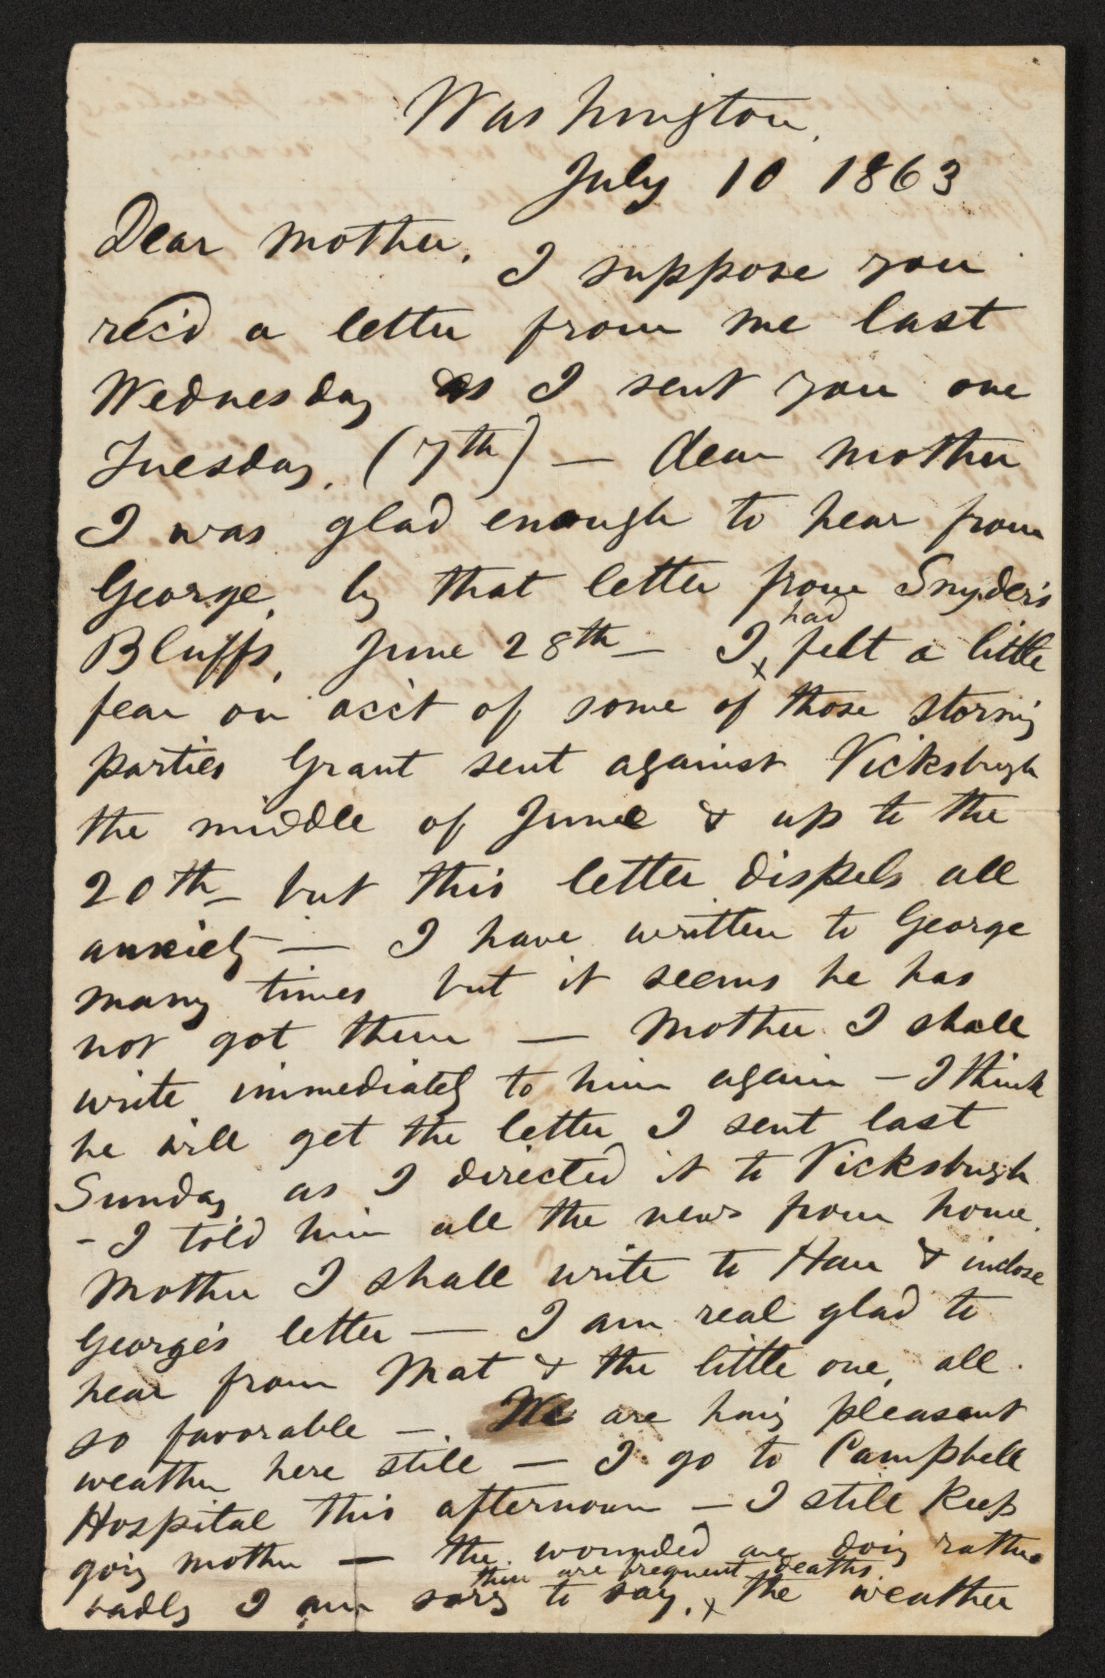 Washington,
July 10 1863
Dear Mother, I suppose you
rec'd a letter from me last
Wednesday as I sent you one
Tuesday, (7th) — dear mother
I was glad enough to hear from
George, by that letter from Snyder's
Bluffs, June 28th — I had felt a little
fear on acc't of some of those storming
parties Grant sent against Vicksburgh
the middle of June & up to the
20th — but this letter dispels all
anxiety — I have written to George
many times but it seems he has
not got them — Mother I shall
write immediately to him again — I think
he will get the letter I sent last
Sunday, as I directed it to Vicksburgh
- I told him all the news from home.
Mother I shall write to Han & inclose
George's letter — I am real glad to
hear from Mat & the little one, all
so favorable — We are having pleasant
weather here still — I go to Campbell
Hospital this afternoon — I still keep
going mother — the wounded are doing rather
badly I am sorry to say, there are frequent deaths the weather